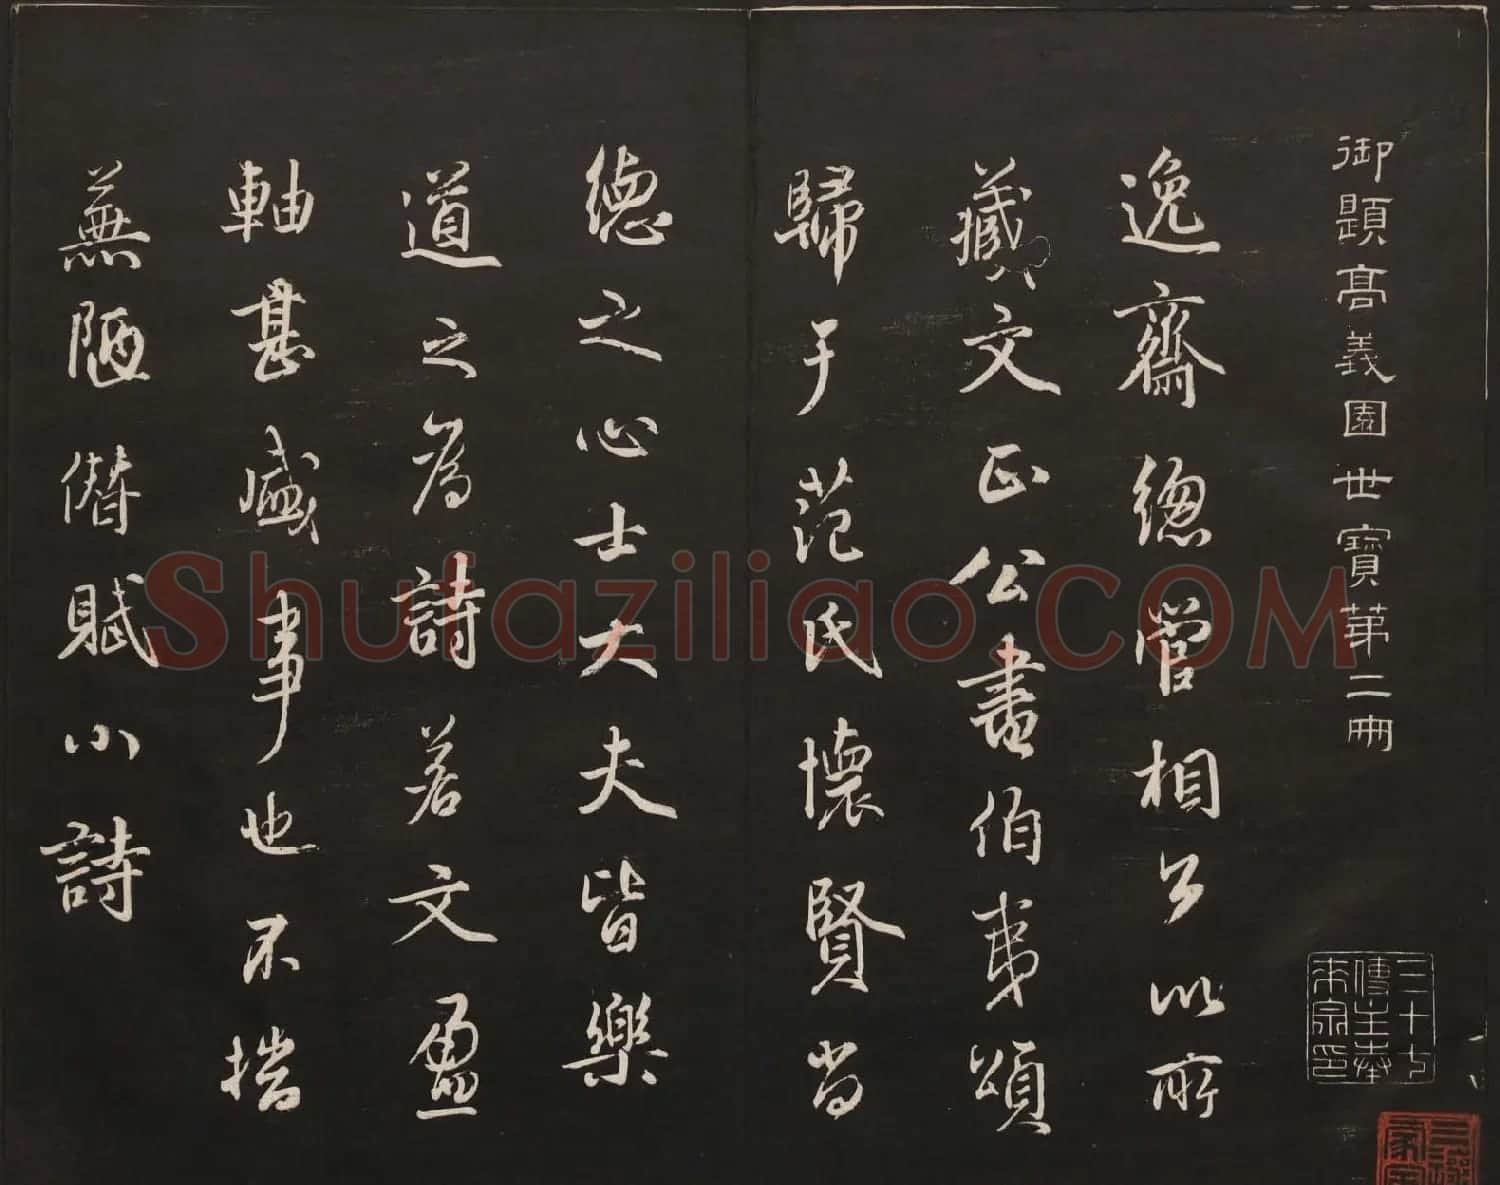 御題高義園世寶第二冊
逸齋總管相公以所
藏文正公書伯夷頌
歸于范氏懷賢尚
德之心士大夫皆樂
道之為詩若文盈
軸甚盛事也不揣
蕪陋僭賦小詩
Shufaziliao.COM